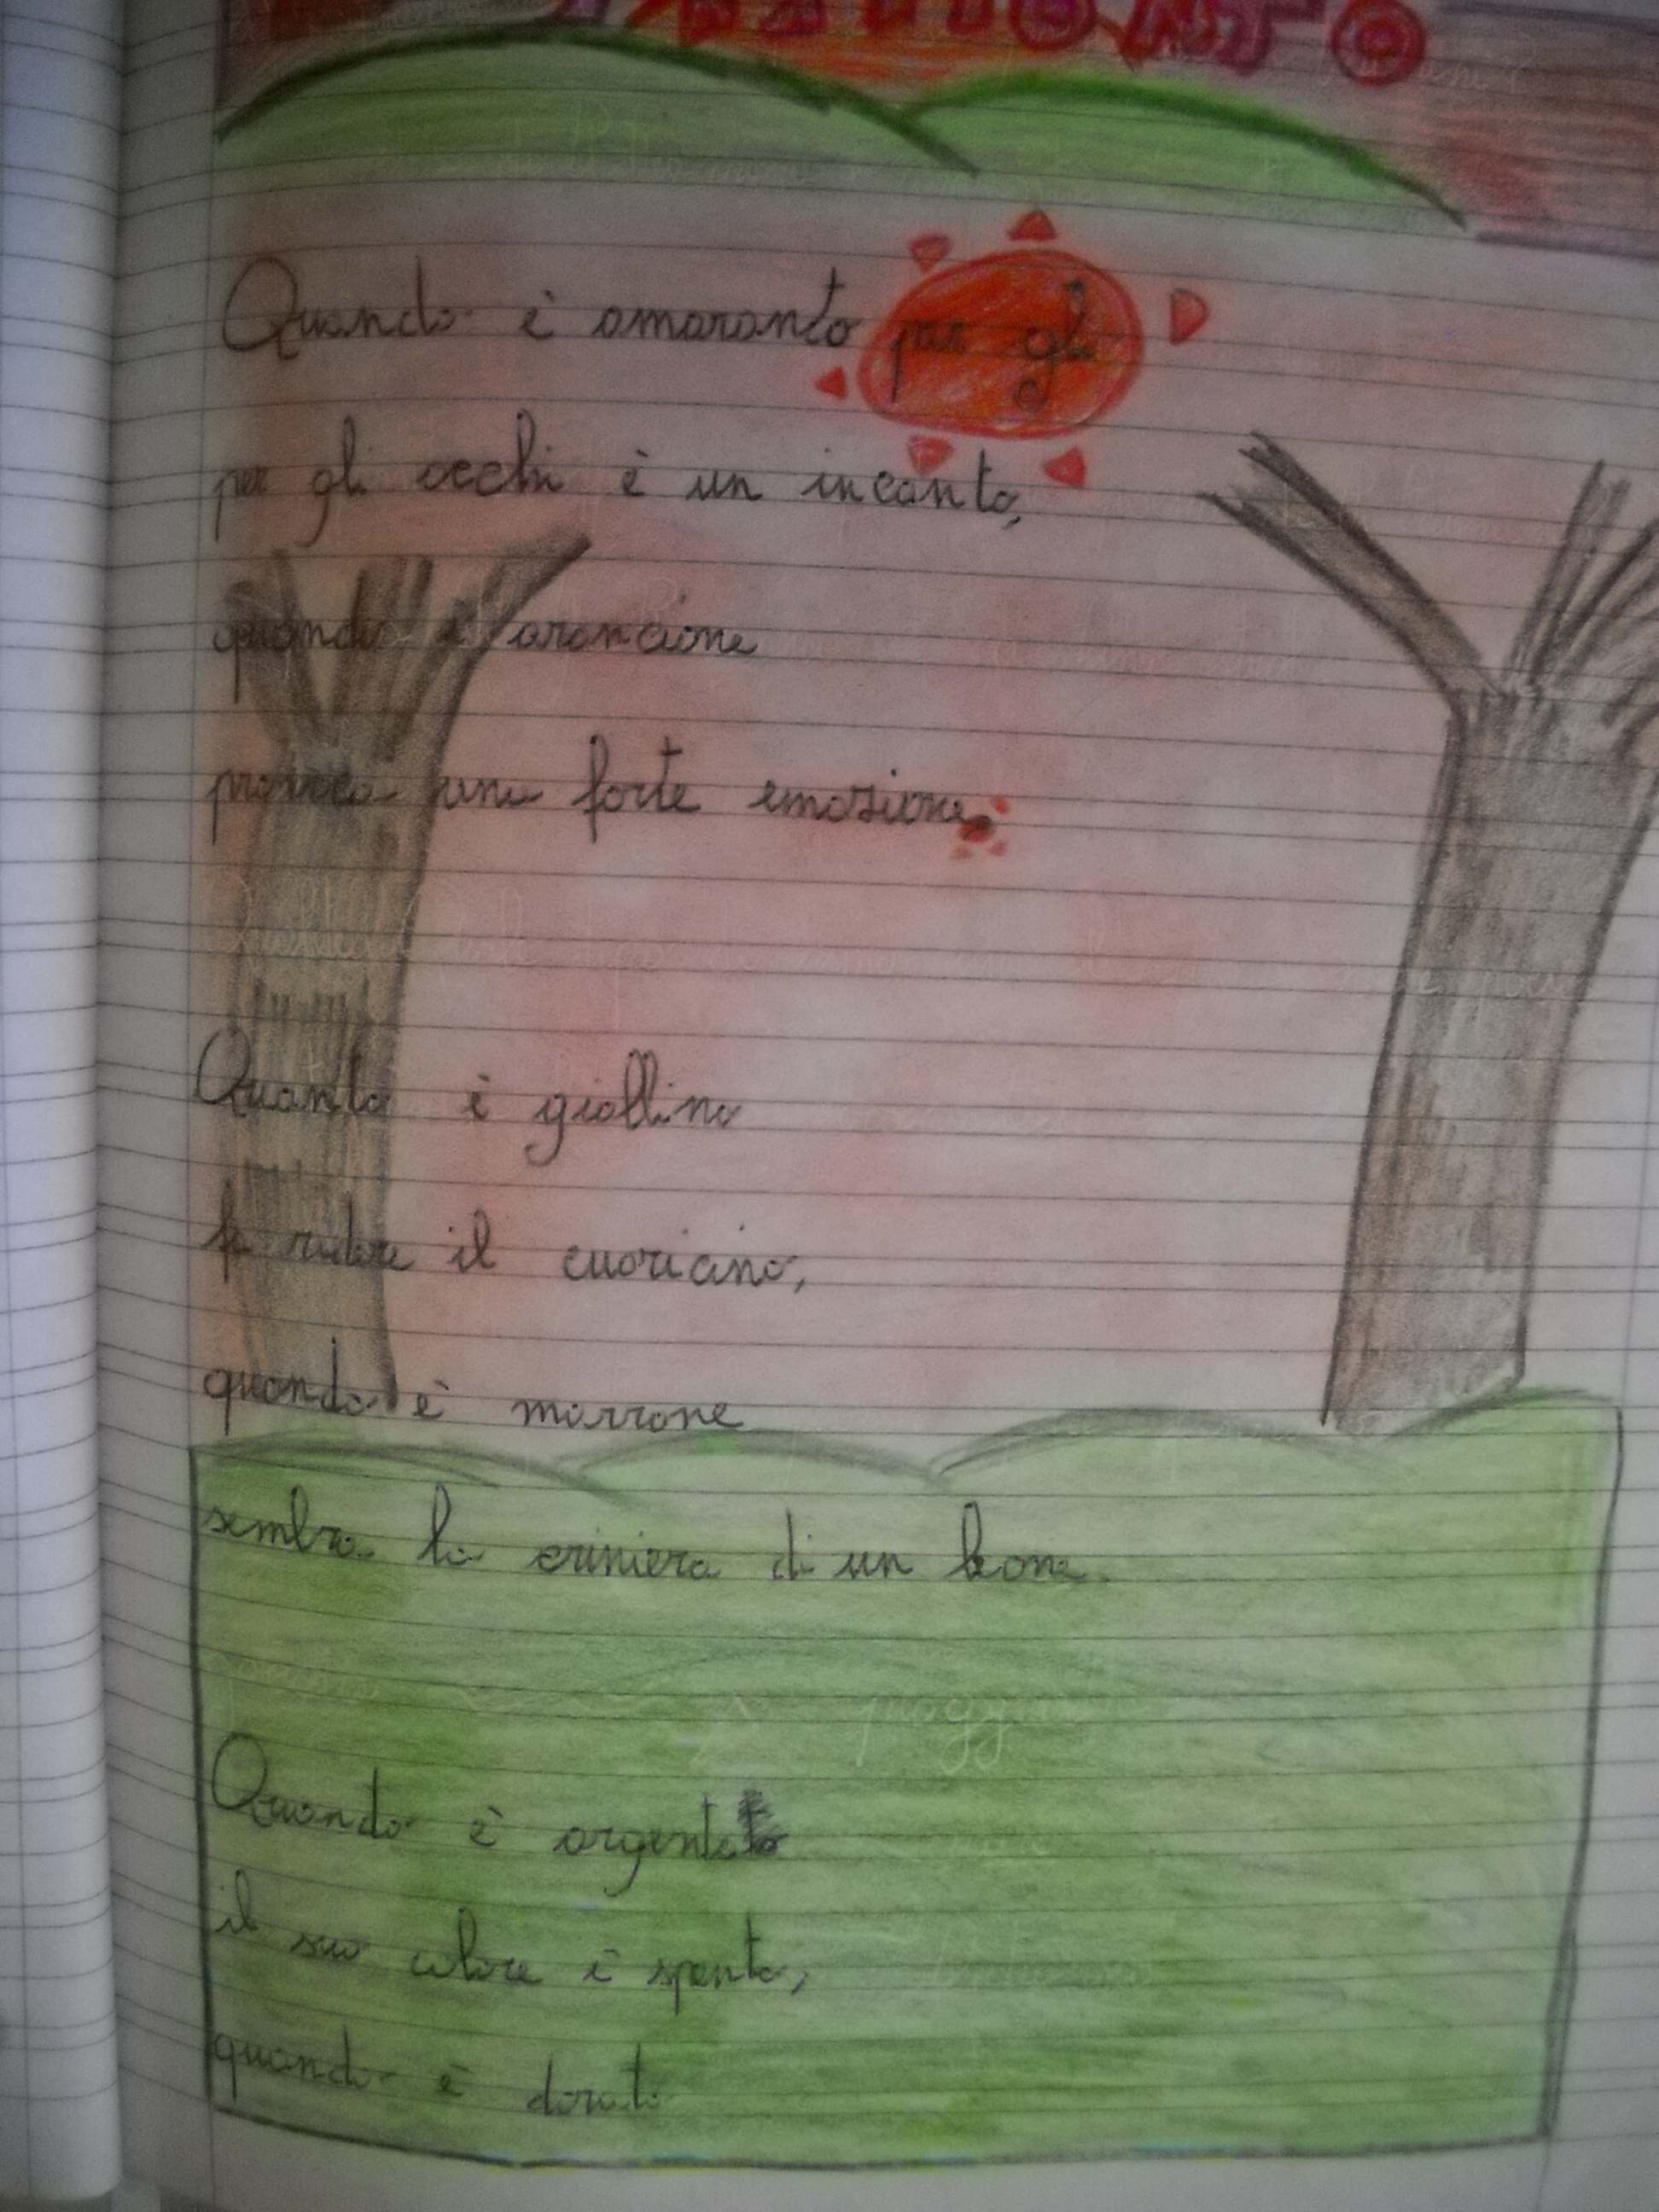 Quando è amaranto per gli
per gli occhi è un incanto,
quando è arancione
provoca una forte emozione.
Quanto è giallino
fa ridere il cuoricino,
quando è marrone
sembra la criniera di un leone.
Quando è argento
il suo colore è spento,
quando è dorato